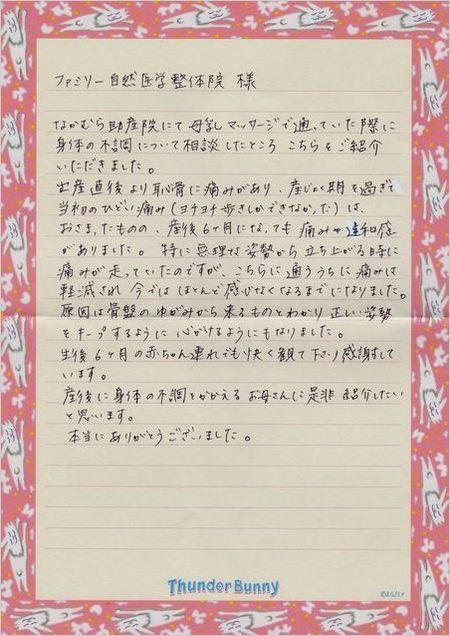 ファミリー自然医学整体院 様
なかむら助産院にて母乳マッサージで通っていた際に
身体の不調について相談したところ こちらをご紹介
いただきました。
出産直後より恥骨に痛みがあり、産じょく期を過ぎて
当初のひどい痛み(ヨチヨチ歩きしかできなかった)は
おさまったものの、産後6ヶ月になっても痛みや違和感
がありました。特に無理な姿勢から立ち上がる時に
痛みが走っていたのですが、こちらに通ううちに痛みは
軽減され 今では ほとんど感じなくなるまでになりました。
原因は骨盤のゆがみから来るものとわかり 正しい姿勢
をキープするように 心がけるようにもなりました。
生後6ヶ月の赤ちゃん連れでも快く観て下さり感謝して
います。
産後に身体の不調をかかえる お母さんに是非 紹介したい
と思います。
本当にありがとうございました。
Thunder Bunny